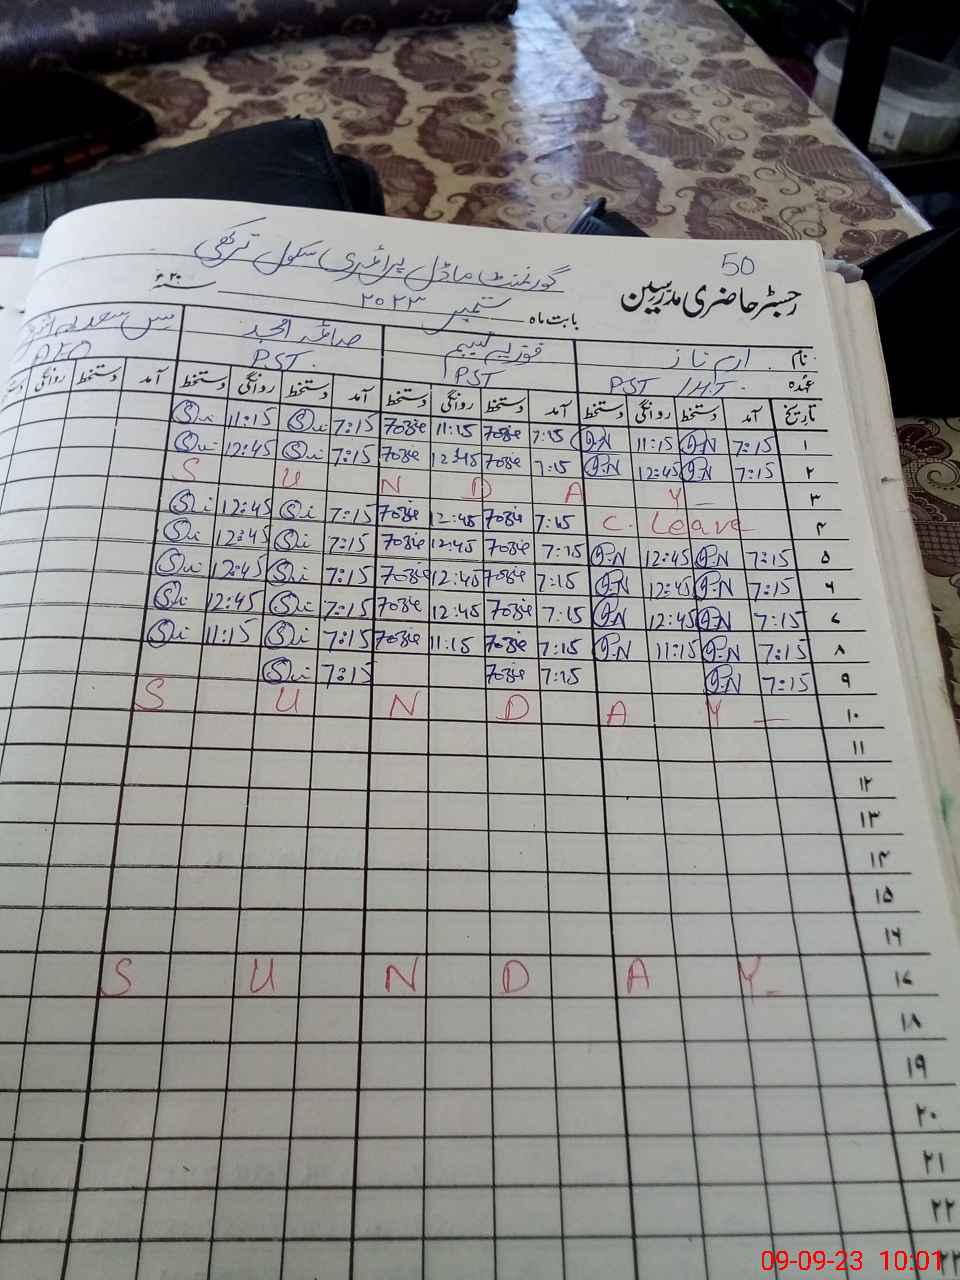 50
گورنمنٹ ماڈل پرائمری سکول ترکھی
رجسٹر حاضری مدرسین
بابت ماہ ستمبر ۲۰۲۳ ۲۰ء
نام ارم ناز فوزیہ نسیم صائمہ امجد مس سعدیہ
عہدہ PST / H.T PST PST AEO
تاریخ آمد دستخط روانگی دستخط آمد دستخط روانگی دستخط آمد دستخط روانگی دستخط آمد دستخط روانگی
۱ 7:15 11:15 7:15 Fozie 11:15 Fozie 7:15 11:15
۲ 7:15 12:45 7:15 Fozie 12:45 Fozie 7:15 12:45
۳ S U N D A Y
۴ C. Leave 7:15 Fozie 12:45 Fozie 7:15 12:45
۵ 7:15 12:45 7:15 Fozie 12:45 Fozie 7:15 12:45
۶ 7:15 12:45 7:15 Fozie 12:45 Fozie 7:15 12:45
۷ 7:15 12:45 7:15 Fozie 12:45 Fozie 7:15 12:45
۸ 7:15 11:15 7:15 Fozie 11:15 Fozie 7:15 11:15
۹ 7:15 7:15 Fozie 7:15
۱۰ S U N D A Y
۱۱
۱۲
۱۳
۱۴
۱۵
۱۶
۱۷ S U N D A Y
۱۸
۱۹
۲۰
۲۱
۲۲
۲۳
09-09-23 10:01